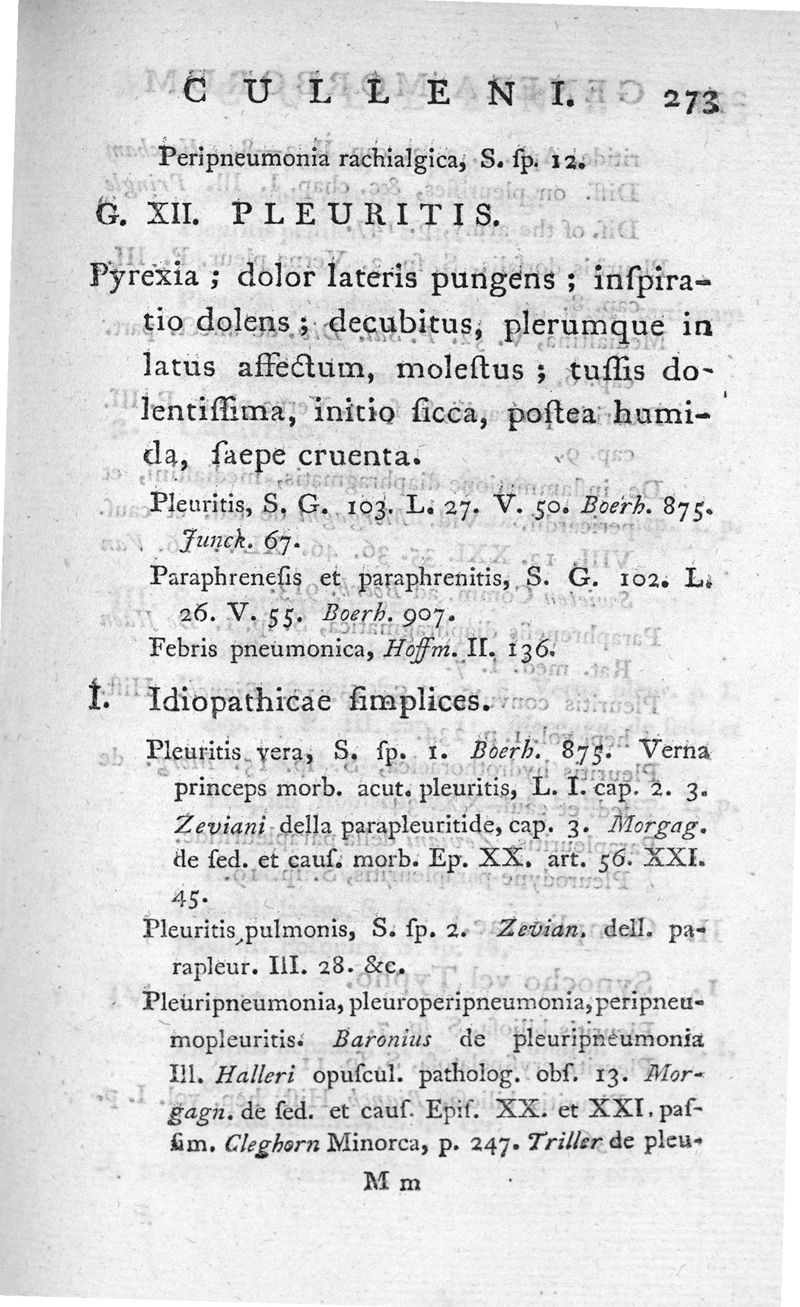 CULLENI. 273
Peripneumonia rachialgica, S. ſp. 12.
G. XII. PLEURITIS.
Pyrexia ; dolor lateris pungens ; inſpira-
tio dolens ; decubitus, plerumque in
latus affectum, moleſtus ; tuſſis do-
lentiſſima, initio ſicca, poſtea humi-
da, ſaepe cruenta.
Pleuritis, S. G. 103. L. 27. V. 50. Boerh. 875.
Junck. 67.
Paraphreneſis et paraphrenitis, S. G. 102. L.
26. V. 55. Boerh. 907.
Febris pneumonica, Hoffm. II. 136.
I. Idiopathicae ſimplices.
Pleuritis vera, S. ſp. 1. Boerh. 875. Verna
princeps morb. acut. pleuritis, L. I. cap. 2. 3.
Zeviani della parapleuritide, cap. 3. Morgag.
de ſed. et cauſ. morb. Ep. XX. art. 56. XXI.
45.
Pleuritis pulmonis, S. ſp. 2. Zevian. dell. pa-
rapleur. III. 28. &c.
Pleuripneumonia, pleuroperipneumonia, peripneu-
mopleuritis. Baronius de pleuripneumonia
III. Halleri opuſcul. patholog. obſ. 13. Mor-
gagn. de ſed. et cauſ. Epiſ. XX. et XXI. paſ-
ſim. Cleghorn Minorca, p. 247. Triller de pleu-
M m